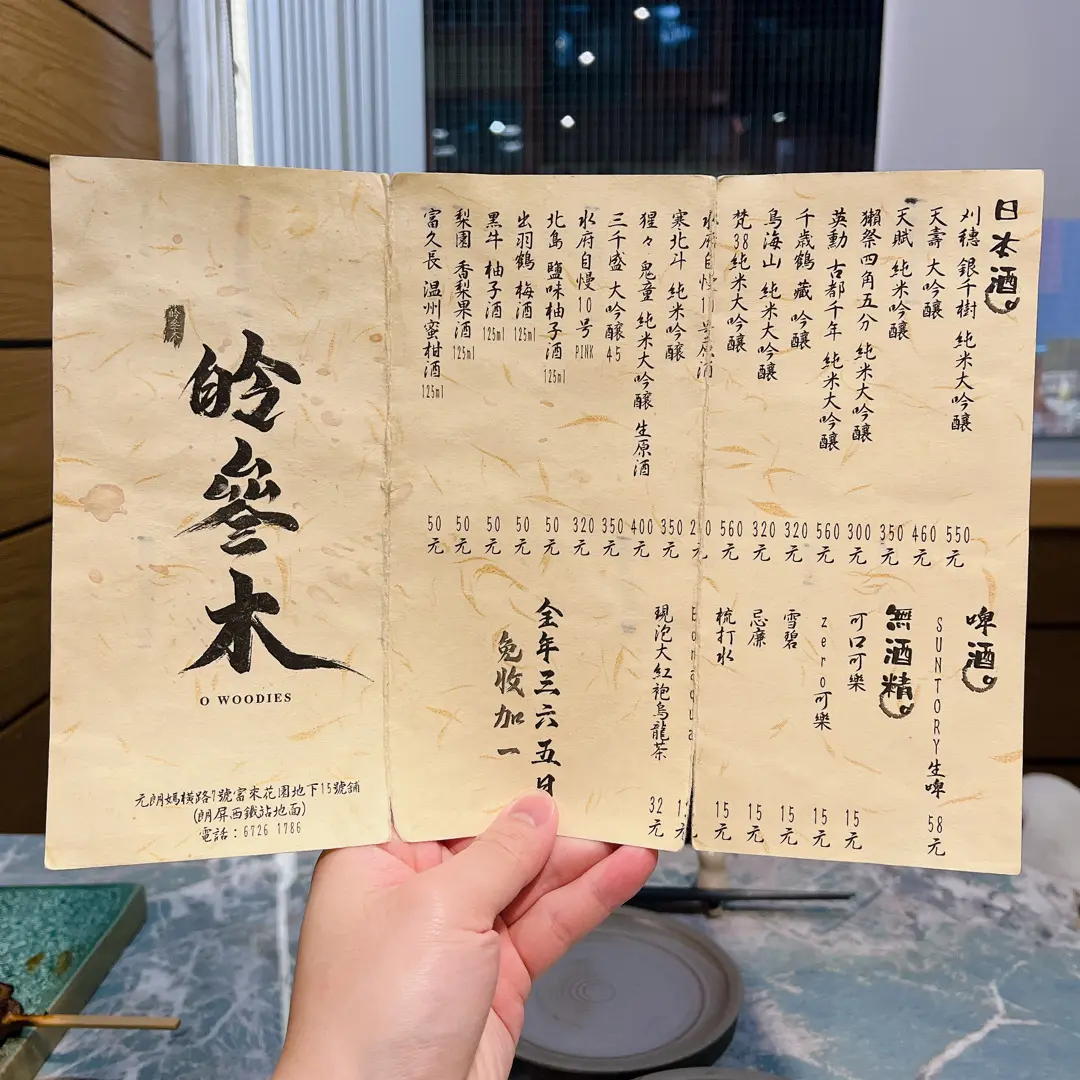 日本酒
刈穗 銀千樹 純米大吟釀 550元
天壽 大吟釀 460元
天賦 純米吟釀 350元
獺祭四角五分 純米大吟釀 300元
英勳 古都千年 純米大吟釀 560元
千歲鶴 藏 吟釀 320元
鳥海山 純米大吟釀 320元
梵38純米大吟釀 560元
水府自慢 原酒 元
寒北斗 純米吟釀 350元
猩々 鬼童 純米大吟釀 生原酒 400元
三千盛 大吟釀45 350元
水府自慢10号 PINK 320元
北島 鹽味柚子酒 125ml 50元
出羽鶴 梅酒 125ml 50元
黑牛 柚子酒 125ml 50元
梨園 香梨果酒 125ml 50元
富久長 温州蜜柑酒 125ml 50元
啤酒
SUNTORY生啤 58元
無酒精
可口可樂 15元
zero可樂 15元
雪碧 15元
忌廉 15元
梳打水 15元
Bonaqua
現泡大紅袍烏龍茶 32元
全年三六五日
免收加一
皊參木
O WOODIES
元朗媽橫路7號富來花園地下15號舖
(朗屏西鐵站地面)
電話:6726 1786